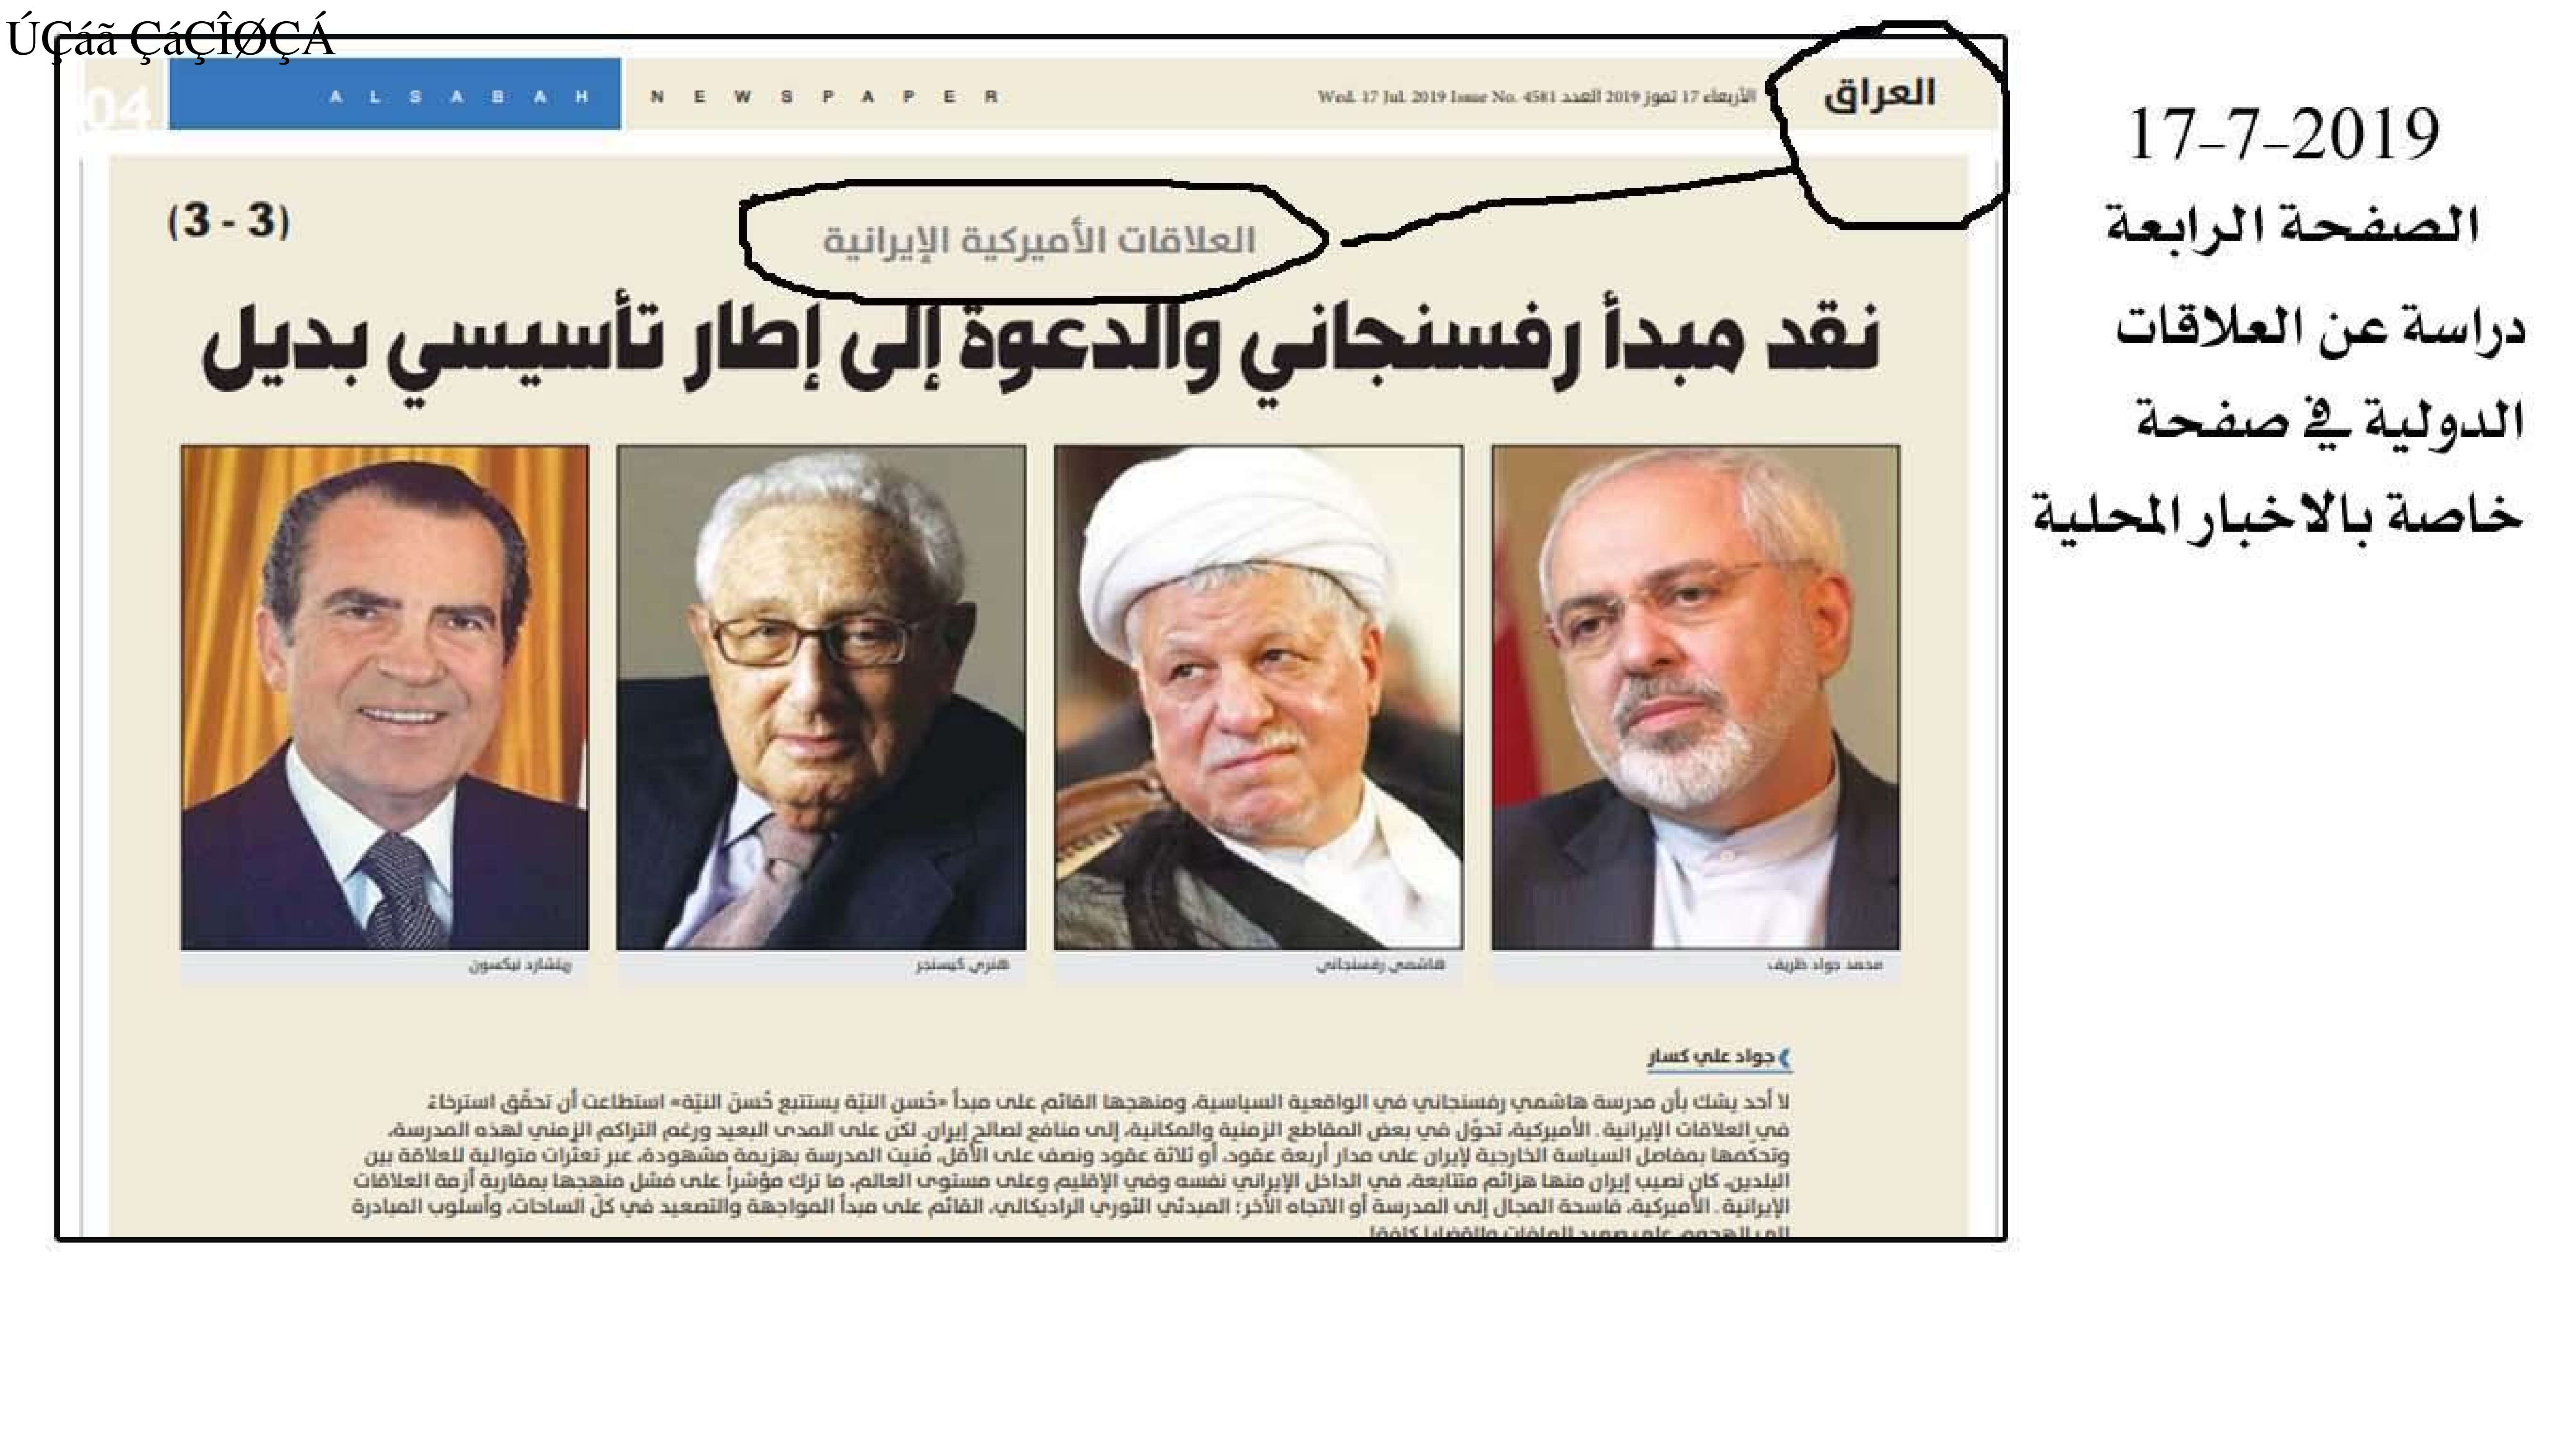 ÚÇáã ÇáÇÎØÇÁ
العراق
الأربعاء 17 تموز 2019 العدد 4581 Wed. 17 Jul. 2019 Issue No.
ALSABAH NEWSPAPER
04
17-7-2019
الصفحة الرابعة
دراسة عن العلاقات
الدولية في صفحة
خاصة بالاخبار المحلية
العلاقات الأميركية الإيرانية
(3 - 3)
نقد مبدأ رفسنجاني والدعوة إلى إطار تأسيسي بديل
محمد جواد ظريف
هاشمي رفسنجاني
هنري كيسنجر
ريتشارد نيكسون
جواد علي كسار
لا أحد يشك بأن مدرسة هاشمي رفسنجاني في الواقعية السياسية، ومنهجها القائم على مبدأ «حُسن النيّة يستتبع حُسنَ النيّة» استطاعت أن تحقّق استرخاءً
في العلاقات الإيرانية ـ الأميركية، تحوّل في بعض المقاطع الزمنية والمكانية، إلى منافع لصالح إيران. لكن على المدى البعيد ورغم التراكم الزمني لهذه المدرسة،
وتحكّمها بمفاصل السياسة الخارجية لإيران على مدار أربعة عقود، أو ثلاثة عقود ونصف على الأقل، مُنيت المدرسة بهزيمة مشهودة، عبر تعثّرات متوالية للعلاقة بين
البلدين، كان نصيب إيران منها هزائم متتابعة، في الداخل الإيراني نفسه وفي الإقليم وعلى مستوى العالم، ما ترك مؤشراً على فشل منهجها بمقاربة أزمة العلاقات
الإيرانية ـ الأميركية، فاسحة المجال إلى المدرسة أو الاتجاه الآخر؛ المبدئي الثوري الراديكالي، القائم على مبدأ المواجهة والتصعيد في كلّ الساحات، وأسلوب المبادرة
إلى الهجوم على صعيد الملفات والقضايا كافة!